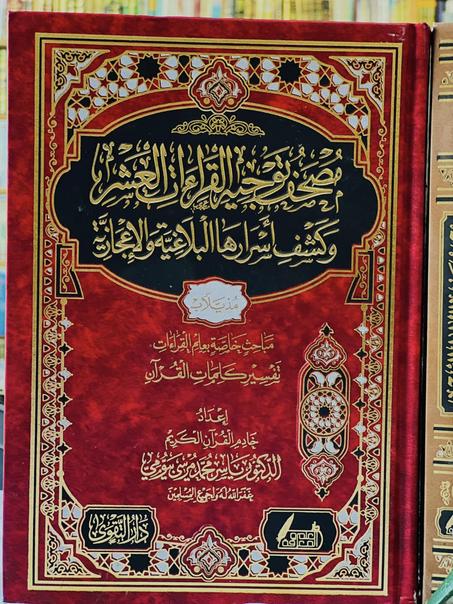 مُصْحَفُ تَوْجِيهِ القِرَاءَاتِ العَشْرِ
وَكَشْفِ أَسْرَارِهَا البَلَاغِيَّةِ وَالإِعْجَازِيَّةِ
مُذَيَّلًا بـ
مَبَاحِث خَاصَّة بِعِلْمِ القِرَاءَاتِ
تَفْسِير كَلِمَات القُرْآن
إِعْدَادُ
خَادِمِ القُرْآنِ الكَرِيمِ
الدكتور ياسر محمد مرسي بيومي
غَفَرَ اللهُ لَهُ وَلِجَمِيعِ المُسْلِمِينَ
دَارُ التَّقْوَى